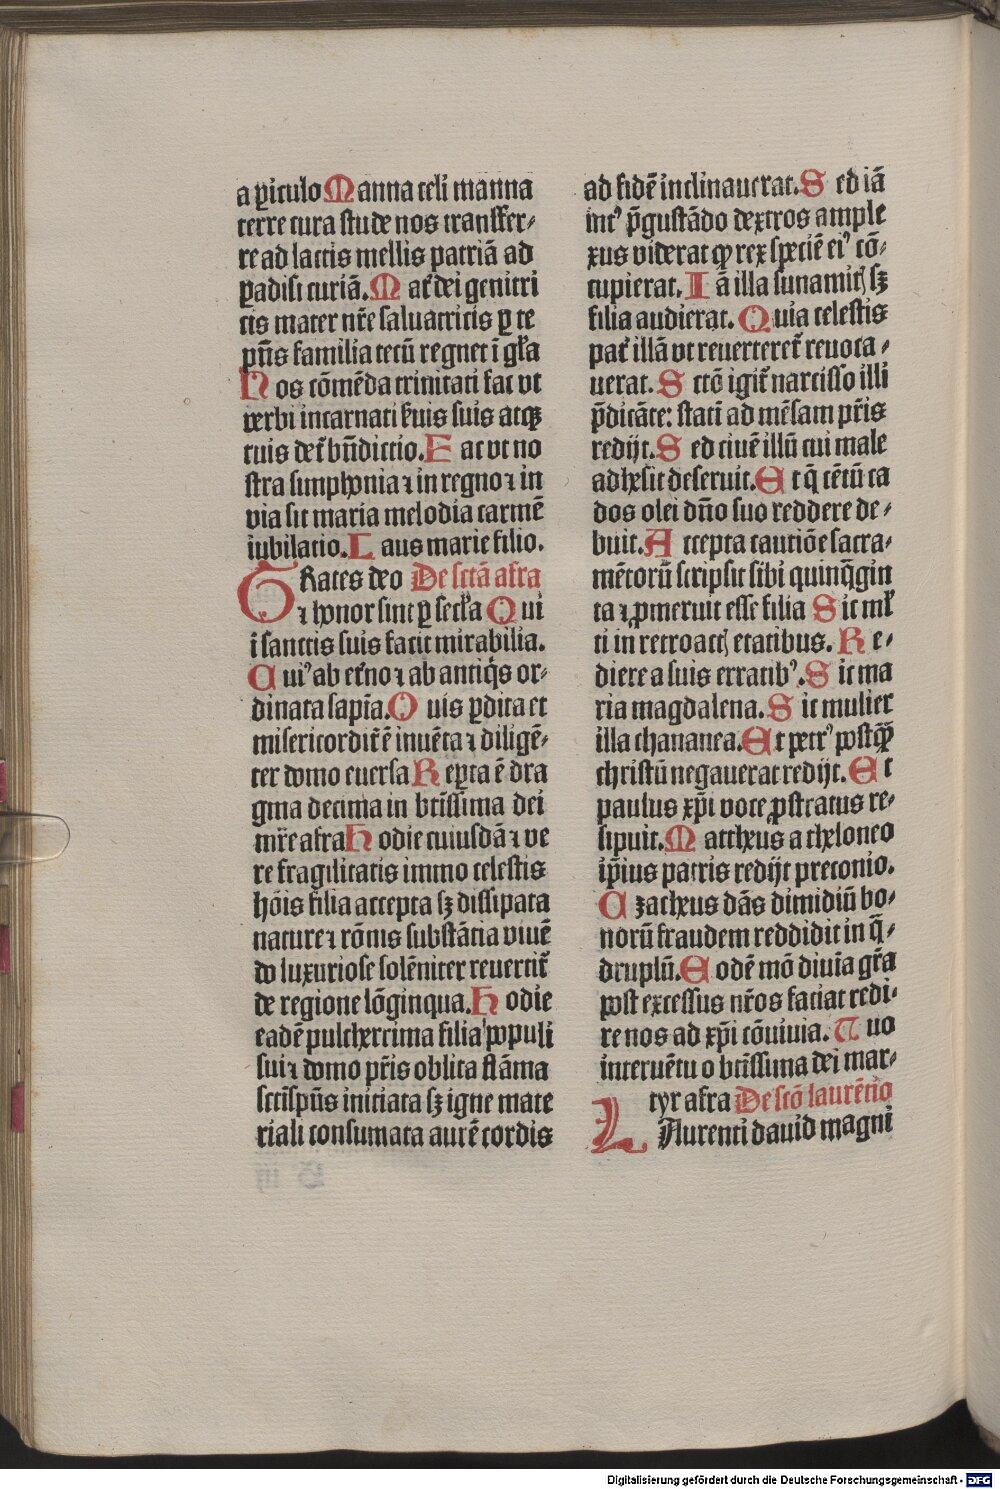 a ꝑiculo Manna celi manna
terre cura stude nos transfer⸗
re ad lactis mellis patriā ad
ꝑadisi curiã. Mat̃ dei genitri
cis mater nr̃e saluatricis ꝑ te
pñs familia tecũ regnet ĩ gl̃a
Nos cõmẽda trinitati fac vt
verbi incarnati s̃uis suis atqꝫ
tuis det̃ bñdictio. Fac vt no
stra simphonia ⁊ in regno ⁊ in
via sit maria melodia carmẽ
iubilatio. Laus marie filio.
GRates deo De sctã afra
⁊ honor sint ꝑ secl̃a Qui
ĩ sanctis suis facit mirabilia.
Cuiꝰ ab et̃no ⁊ ab antiq̃s or⸗
dinata sapĩa. Ouis ꝑdita et
misericordit̃ ẽ inuẽta ⁊ diligẽ⸗
ter domo euersa Reꝑta ẽ dra
gma decima in btĩssima dei
mr̃e afra Hodie cuiusdã ⁊ ve
re fragilitatis immo celestis
hõis filia accepta sꝫ dissipata
nature ⁊ rõnis substãcia viuẽ
do luxuriose solẽniter reuertit̃
de regione lõginqua. Hodie
eadẽ pulcherrima filia populi
sui ⁊ domo pr̃is oblita flãma
sctĩspũs iniciata sꝫ igne mate
riali consumata aurẽ cordis
ad fidẽ inclinauerat. Sed iã
int̾ p̃gustãdo dextros ample
xus viderat qꝫ rex speciẽ eiꝰ cõ⸗
cupierat. Iã illa sunamitꝭ sꝫ
filia audierat. Quia celestis
pat̃ illã vt reuerteret̃ reuoca⸗
uerat. Sctõ igit̃ narcisso illi
p̃dicãte: statĩ ad mẽsam pr̃is
redijt. Sed ciuẽ illũ cui male
adhesit deseruit. Et q̃ cẽtũ ca
dos olei dño suo reddere de⸗
buit. Accepta cautiõe sacra⸗
mẽtorũ scripsit sibi quinq̃gin
ta ⁊ ꝓmeruit esse filia Sic ml̃
ti in retroactꝭ etatibus. Re⸗
diere a suis erratibꝰ. Sic ma
ria magdalena. Sic mulier
illa chananea. Et petrꝰ postqꝫ̃
christũ negauerat redijt. Et
paulus xp̃i voce ꝓstratus re⸗
sipuit. Mattheus a theloneo
ip̃ius patris redijt preconio.
Czacheus dãs dimidiũ bo⸗
norũ fraudem reddidit in q̃⸗
druplũ. Eodẽ mõ diuĩa gr̃a
post excessus nr̃os faciat redi⸗
re nos ad xp̃i cõuiuia. Tuo
interuẽtu o btĩssima dei mar⸗
tyr afra De sctõ laurẽcio
LAurenti dauid magni
Digitalisierung gefördert durch die Deutsche Forschungsgemeinschaft - DFG